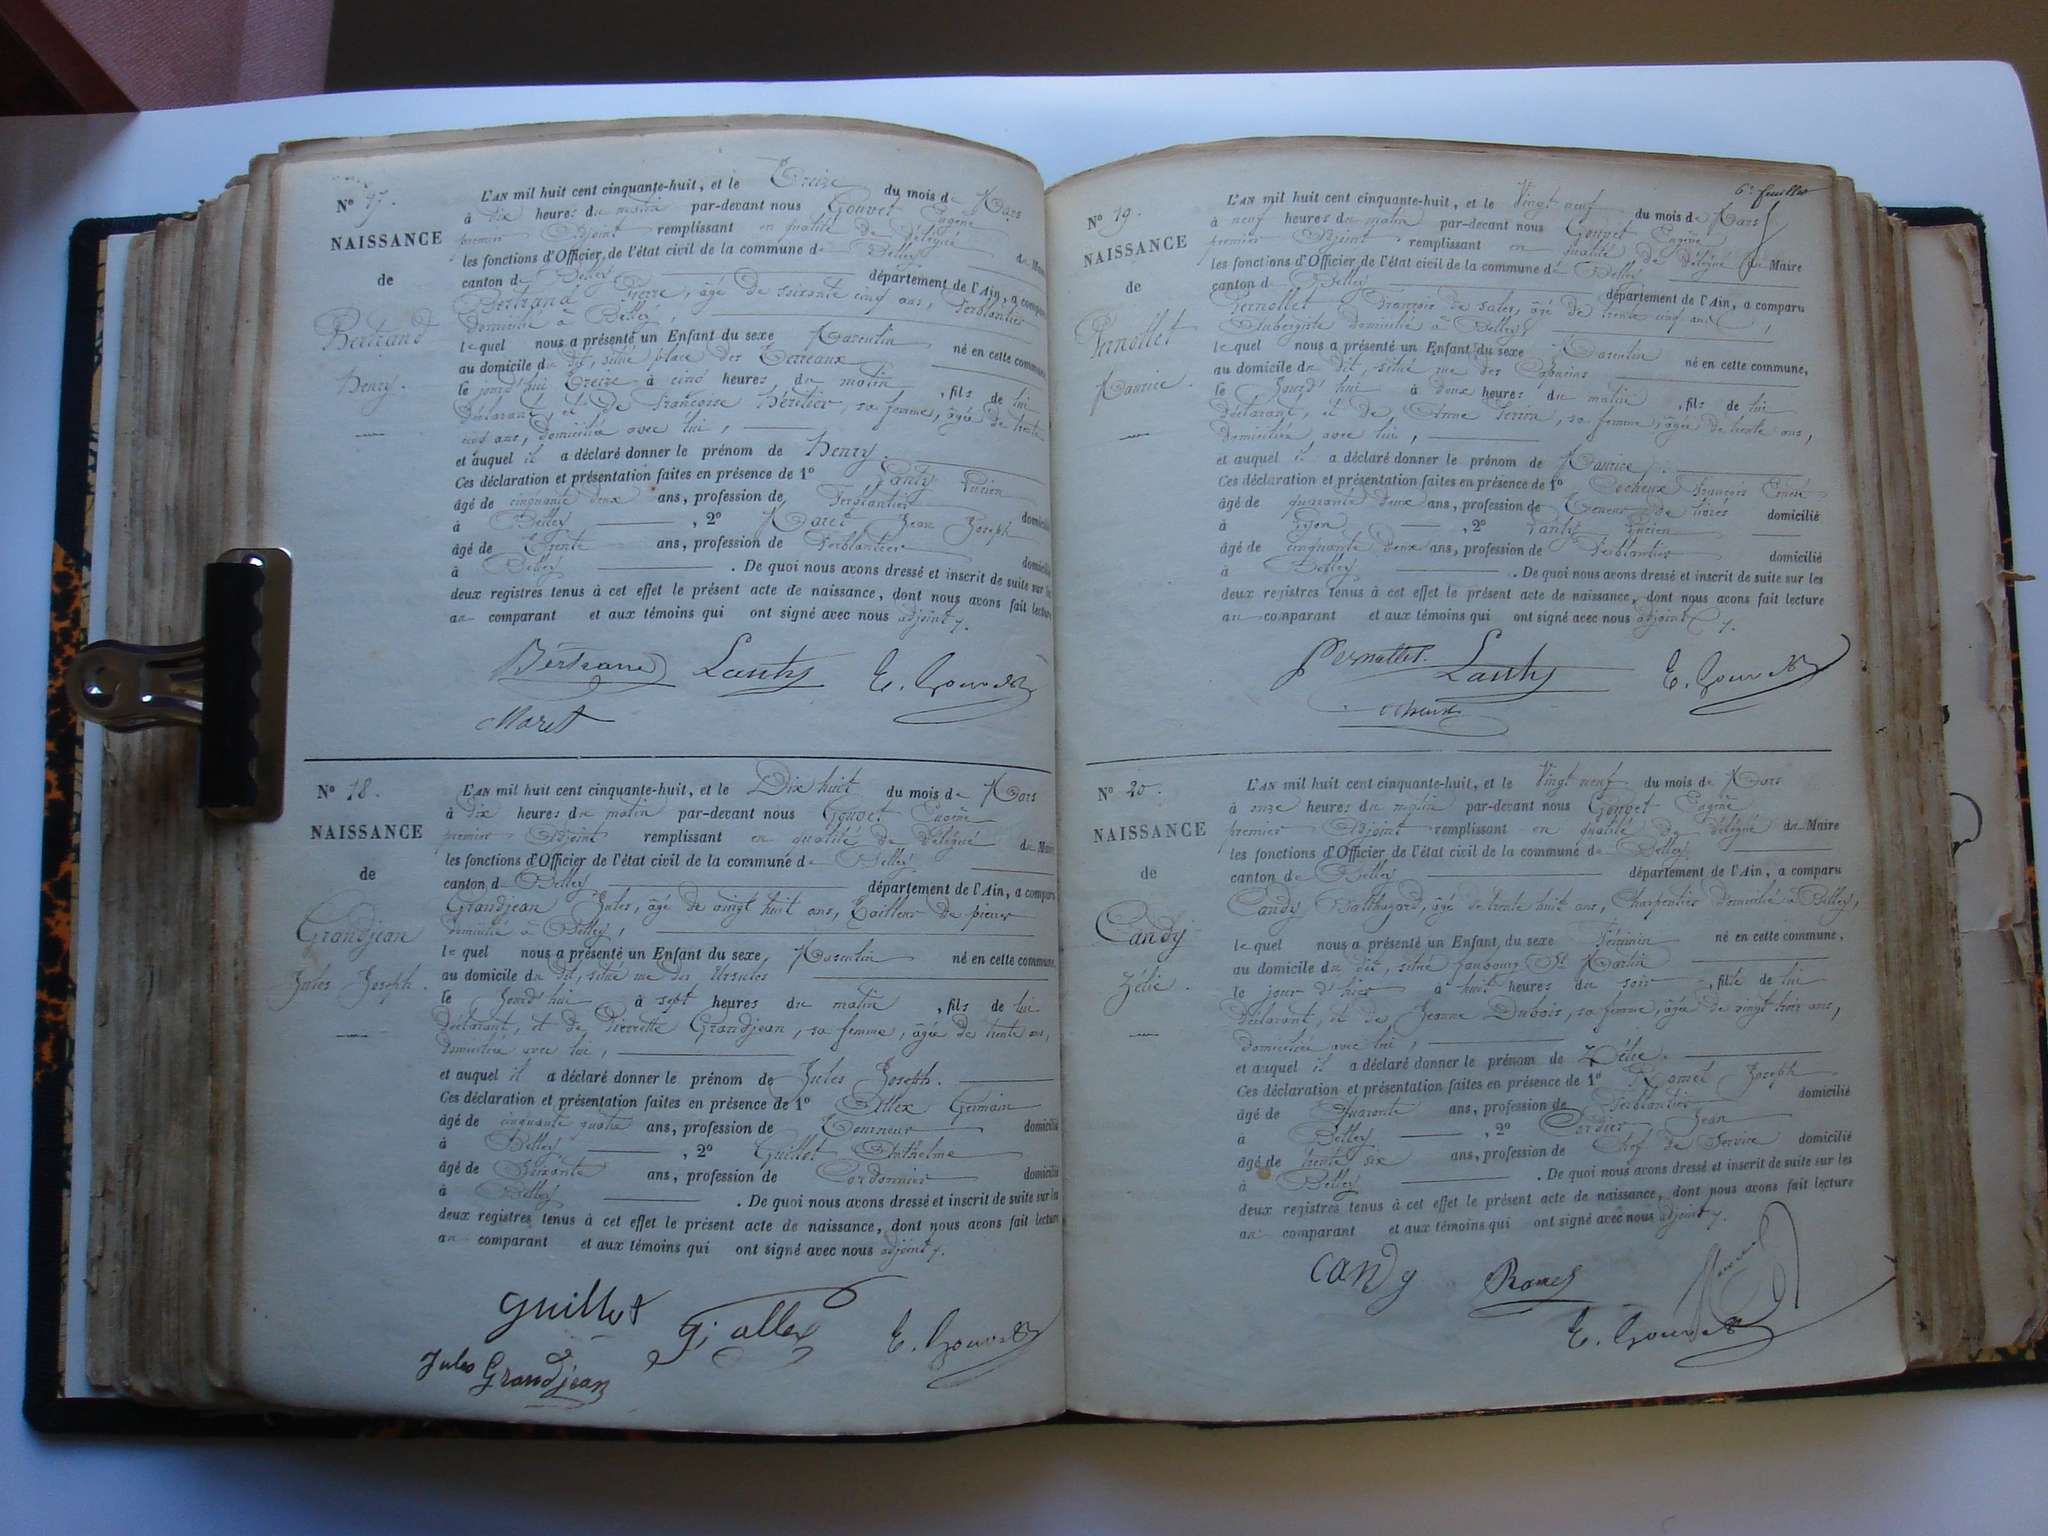 N° 17.
NAISSANCE
de
Bertrand
Henry.
L'AN mil huit cent cinquante-huit, et le Treize du mois de Mars
à dix heures du matin par-devant nous Gouvet Eugène
premier Adjoint remplissant en qualité de délégué du Maire
les fonctions d'Officier de l'état civil de la commune de Belley
canton de Belley département de l'Ain, a comparu
Bertrand Pierre, âgé de soixante cinq ans, Ferblantier
domicilié à Belley,
le quel nous a présenté un Enfant du sexe Masculin né en cette commune
au domicile du dit, situé place des Terreaux
le jourd'hui Treize à cinq heures du matin, fils de lui
déclarant, et de Françoise Héritier, sa femme, âgée de trente
ans, domiciliée avec lui,
et auquel il a déclaré donner le prénom de Henry.
Ces déclaration et présentation faites en présence de 1° Lanty Lucien
âgé de cinquante deux ans, profession de Ferblantier domicilié
à Belley, 2° Maret Jean Joseph
âgé de Trente ans, profession de Ferblantier domicilié
à Belley. De quoi nous avons dressé et inscrit de suite sur les
deux registres tenus à cet effet le présent acte de naissance, dont nous avons fait lecture
au comparant et aux témoins qui ont signé avec nous adjoint.
Bertrand Lanty E. Gouvet
Maret
N° 18.
NAISSANCE
de
Grandjean
Jules Joseph.
L'AN mil huit cent cinquante-huit, et le Dix huit du mois de Mars
à dix heures du matin par-devant nous Gouvet Eugène
premier Adjoint remplissant en qualité de délégué du Maire
les fonctions d'Officier de l'état civil de la commune de Belley
canton de Belley département de l'Ain, a comparu
Grandjean Jules, âgé de vingt huit ans, Tailleur de pierre
domicilié à Belley,
le quel nous a présenté un Enfant du sexe Masculin né en cette commune,
au domicile du dit, situé rue des Ursules
le Jourd'hui à sept heures du matin, fils de lui
déclarant, et de Pierrette Grandjean, sa femme, âgée de trente ans,
domiciliée avec lui,
et auquel il a déclaré donner le prénom de Jules Joseph.
Ces déclaration et présentation faites en présence de 1° Allex Germain
âgé de cinquante quatre ans, profession de Tourneur domicilié
à Belley, 2° Guillot Anthelme
âgé de Soixante ans, profession de Cordonnier domicilié
à Belley. De quoi nous avons dressé et inscrit de suite sur les
deux registres tenus à cet effet le présent acte de naissance, dont nous avons fait lecture
au comparant et aux témoins qui ont signé avec nous adjoint.
Guillot G. allex E. Gouvet
Jules Grandjean
6e feuillet
N° 19.
NAISSANCE
de
Pernollet
Maurice.
L'AN mil huit cent cinquante-huit, et le Vingt neuf du mois de Mars
à neuf heures du matin par-devant nous Gouvet Eugène
premier Adjoint remplissant en qualité de délégué du Maire
les fonctions d'Officier de l'état civil de la commune de Belley
canton de Belley département de l'Ain, a comparu
Pernollet François de sales, âgé de trente cinq ans,
Aubergiste domicilié à Belley
le quel nous a présenté un Enfant du sexe Masculin né en cette commune,
au domicile du dit, situé rue des Capucins
le Jourd'hui à deux heures du matin, fils de lui
déclarant, et de Anne, sa femme, âgée de trente ans,
domiciliée avec lui,
et auquel il a déclaré donner le prénom de Maurice.
Ces déclaration et présentation faites en présence de 1° Cocheux François Ernest
âgé de quarante deux ans, profession de Teneur de livres domicilié
à Lyon, 2° Lanty Lucien
âgé de cinquante deux ans, profession de Ferblantier domicilié
à Belley. De quoi nous avons dressé et inscrit de suite sur les
deux registres tenus à cet effet le présent acte de naissance, dont nous avons fait lecture
au comparant et aux témoins qui ont signé avec nous adjoint.
Pernollet Lanty E. Gouvet
Cocheux
N° 20.
NAISSANCE
de
Candy
Zélie.
L'AN mil huit cent cinquante-huit, et le Vingt neuf du mois de Mars
à onze heures du matin par-devant nous Gouvet Eugène
premier Adjoint remplissant en qualité de délégué du Maire
les fonctions d'Officier de l'état civil de la commune de Belley
canton de Belley département de l'Ain, a comparu
Candy Balthazard, âgé de trente huit ans, Charpentier domicilié à Belley,
le quel nous a présenté un Enfant du sexe Féminin né en cette commune,
au domicile du dit, situé faubourg St Martin
le jour d'hier à huit heures du soir, fille de lui
déclarant, et de Jeanne Dubois, sa femme, âgée de vingt trois ans,
domiciliée avec lui,
et auquel il a déclaré donner le prénom de Zélie.
Ces déclaration et présentation faites en présence de 1° Ramel Joseph
âgé de Quarante ans, profession de Ferblantier domicilié
à Belley, 2° Cordier Jean
âgé de trente six ans, profession de Chef de Service domicilié
à Belley. De quoi nous avons dressé et inscrit de suite sur les
deux registres tenus à cet effet le présent acte de naissance, dont nous avons fait lecture
au comparant et aux témoins qui ont signé avec nous adjoint.
Candy Ramel
E. Gouvet